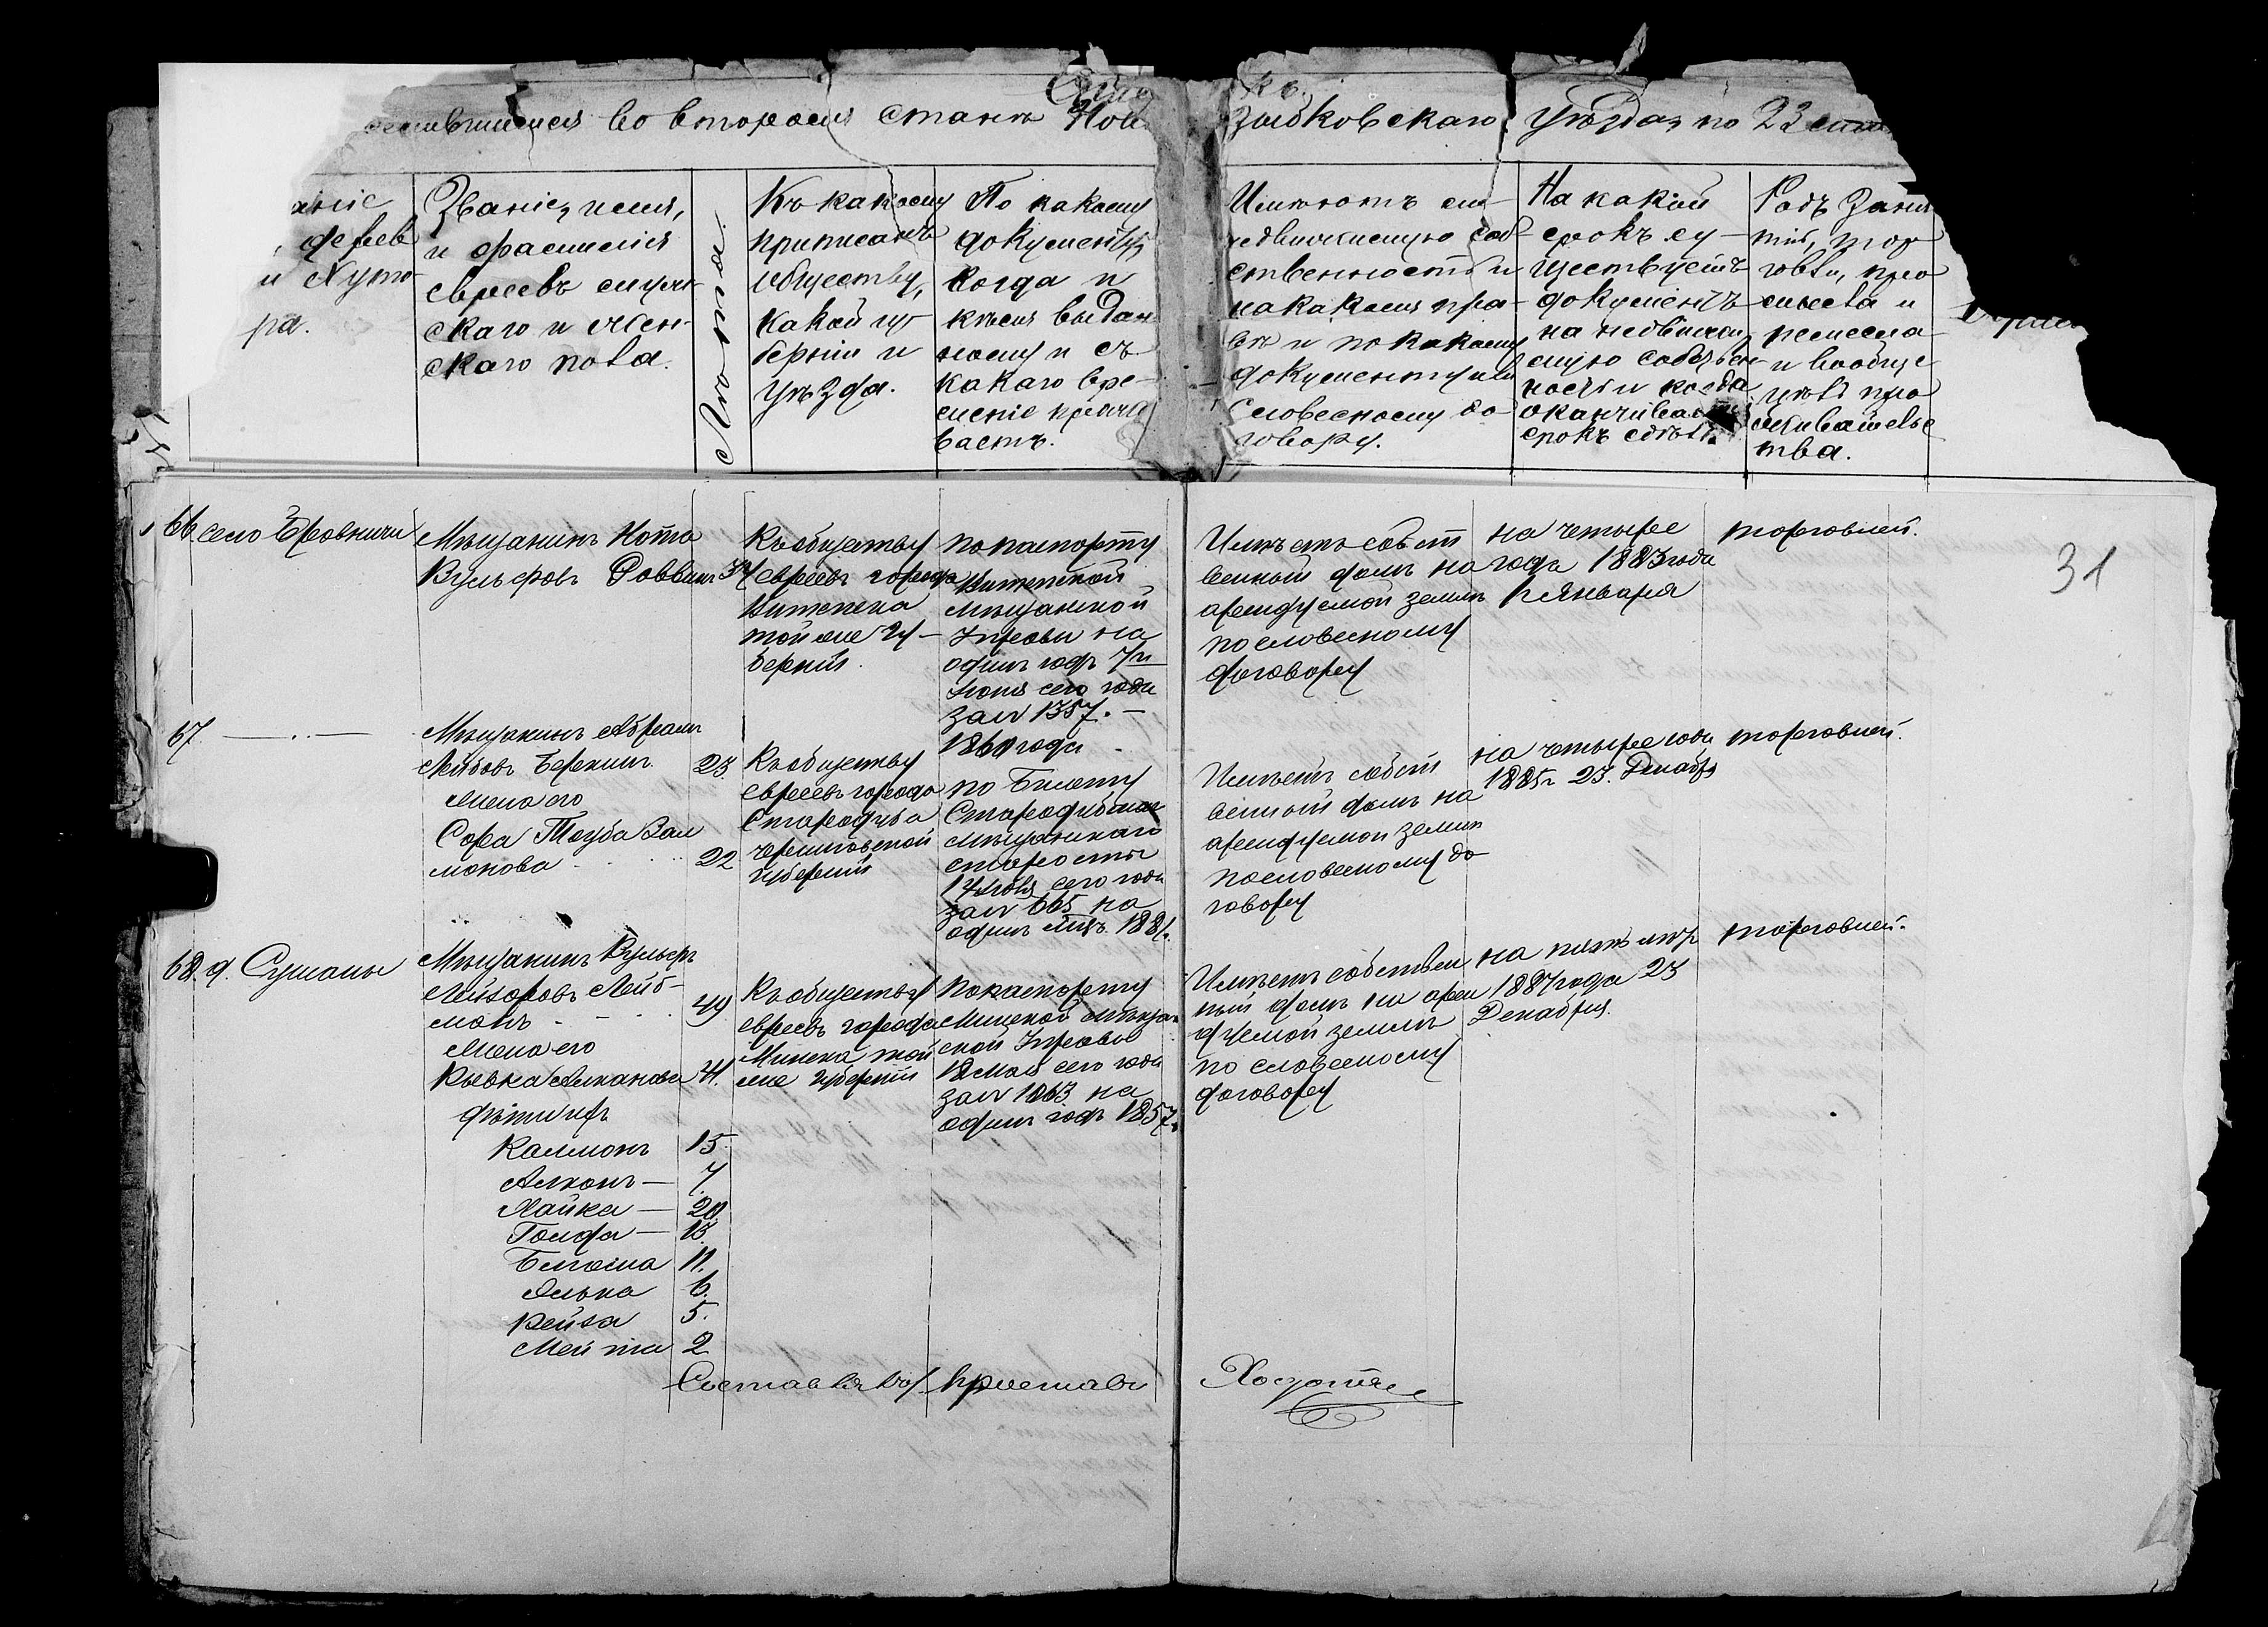 во второмъ станѣ Нов
Зыбковскаго уѣзда, по 23
дерев
и Хуто
ра.
Званіе, имя,
и фамилія
евреевъ мужс-
скаго и жен-
скаго пола.
Лѣта.
Къ какому
приписанъ
обществу,
какой гу-
берніи и
уѣзда.
По какому
документу,
когда и
кѣмъ выдан
ному и съ
какаго вре-
мение прожи
ваетъ.
Имѣютъ ли
недвижимую соб-
ственность и
на какомъ пра-
вѣ и по какому
документу или
Словесному до-
говору.
На какой
срокъ су-
ществуетъ
документъ
на недвижи
мую собствен
ность и когда
оканчивается
срокъ
Родъ Заня
тій, тор
говли, про
мысла и
ремесла
и вообще
цѣль про
живательс
тва.
31
66 село Бровничи
Мѣщанинъ Нота
Вульфовъ 34
Къ обществу
евреевъ города
Витепска
той же гу-
берніи.
По паспорту
Витепской
мѣщанской
Управы на
одинъ годъ 7и
Іюня сего года
за № 1357. —
1860 года
Имѣетъ собст
венный домъ на
арендуемой землѣ
по словесному
договору
на четыре
года 1883 года
1 Января
торговлей.
67. — . —
Мѣщанинъ Абрамъ
Лейбовъ Беркинъ 23
Жена его
Сора Тауба Зал
монова 22
Къ обществу
евреевъ города
Стародуба
Черниговской
губерніи
по Билету
мѣщанскаго
старосты
сего года
за № 665 на
одинъ мцъ. 1881.
Имѣетъ собст
венный домъ на
арендуемой землѣ
по словесному до
говору
на четыре года
1885 г. 23. Декабр
торговлей.
68. д. Сушаны
Мѣщанинъ Вульфъ
Лейзоровъ Лейб-
манъ - - . 49
Жена его
Рывка 41.
дѣти ихъ
Калманъ 15
Алконъ — 7
Хайка — 20
Голда — 13
11.
6.
Рейза 5.
2
Къ обществу
евреевъ города
Минска той
же губерніи
По паспорту
Минской мѣщан
ской Управы
18 Мая сего года
за № 1063 на
одинъ годъ 1857.
Имѣетъ собствен
ный домъ на арен
дуемой землѣ
по словесному
договору
на пять лѣтъ
1887 года 23
Декабря.
торговлей.
Составлялъ/ Приставъ